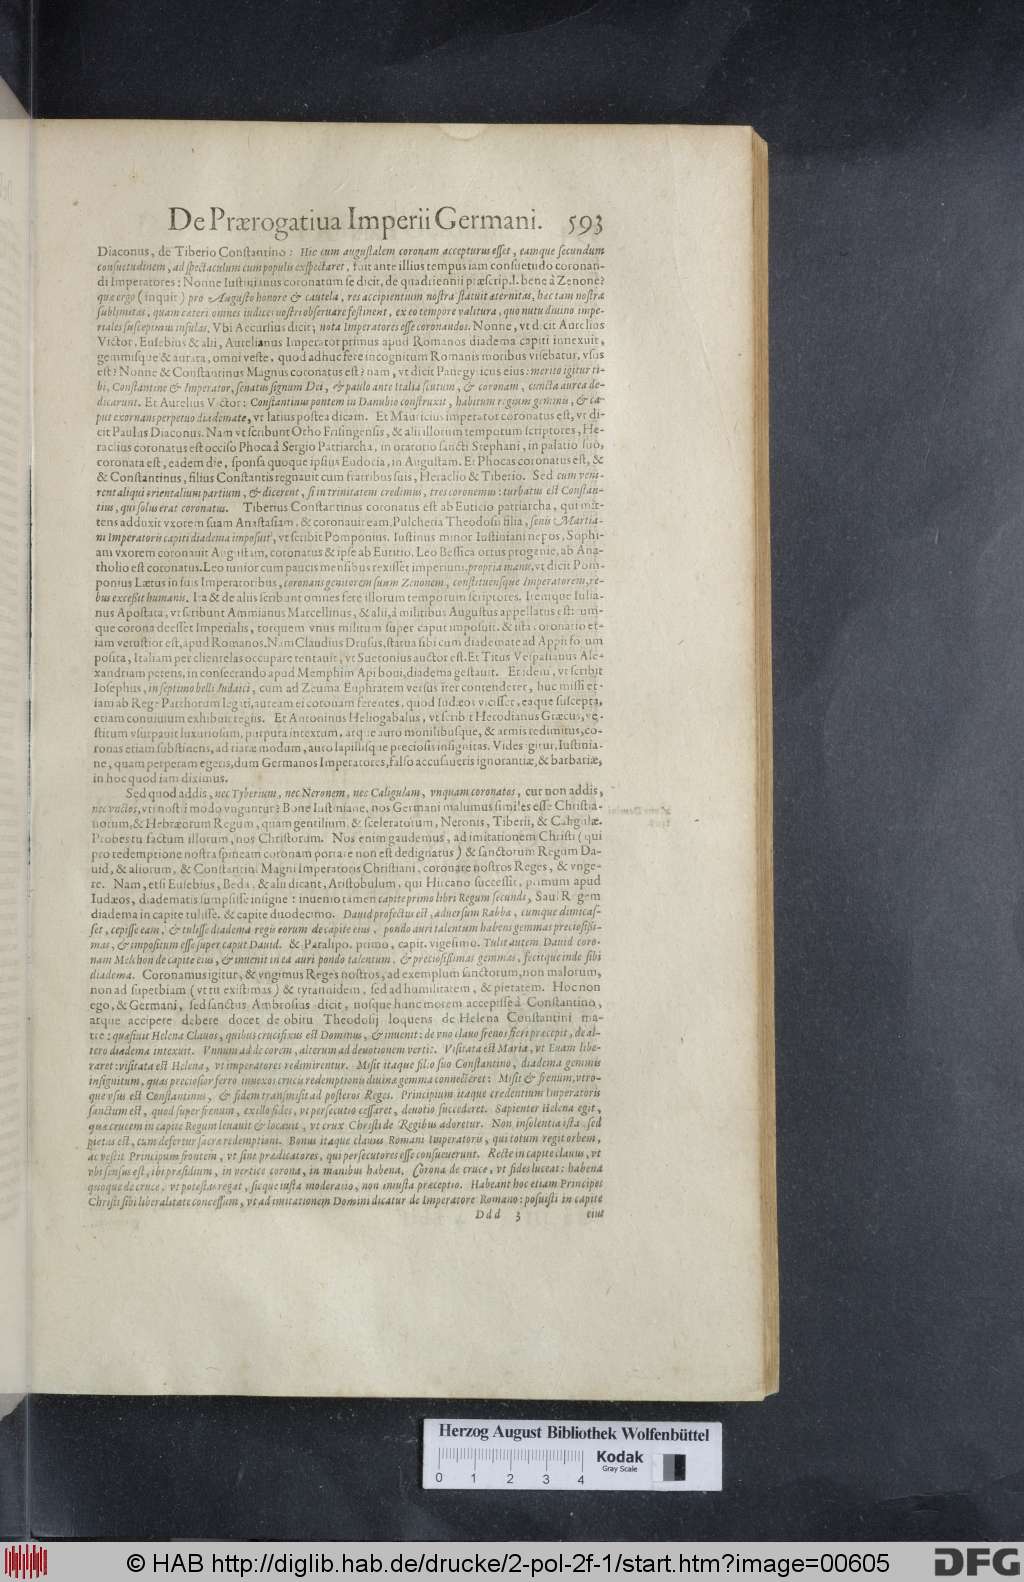 De Prærogatiua Imperii Germani. 593
Diaconus, de Tiberio Constantino: Hic cum augustalem coronam accepturus esset, eamque secundum
consuetudinem, ad spectaculum cum populus exspectaret, fuit ante illius tempus iam consuetudo coronan-
di Imperatores: Nonne Iustinianus coronatum se dicit, de quadriennii præscrip. l. bene à Zenone?
quæ ergo (inquit) pro Augusto honore & cautela, res accipientium nostra statuit æternitas, hæc tam nostra
sublimitas, quam cæteri omnes iudices nostri obseruare festinent, ex eo tempore valitura, quo nutu diuino impe-
riales suscepimus infulas. Vbi Accursius dicit; nota Imperatores esse coronandos. Nonne, vt dicit Aurelios
Victor, Eusebius & alii, Aurelianus Imperator primus apud Romanos diadema capiti innexuit,
gemmisque & aurata, omni veste, quod adhuc fere incognitum Romanis moribus visebatur, vsus
est? Nonne & Constantinus Magnus coronatus est? nam, vt dicit Panegyricus eius: merito igitur ti-
bi, Constantine & Imperator, senatus signum Dei, & paulo ante Italia scutum, & coronam, cuncta aurea de-
dicarunt. Et Aurelius Victor: Constantinus pontem in Danubio construxit, habitum regium gemmis, & ca-
put exornans perpetuo diademate, vt latius postea dicam. Et Mauricius imperator coronatus est, vt di-
cit Paulus Diaconus. Nam vt scribunt Otho Frisingensis, & alii illorum temporum scriptores, He-
raclius coronatus est occiso Phoca à Sergio Patriarcha, in oratorio sancti Stephani, in palatio suo,
coronata est, eadem die, sponsa quoque ipsius Eudocia, in Augustam. Et Phocas coronatus est, &
& Constantinus, filius Constantis regnauit cum fratribus suis, Heraclio & Tiberio. Sed cum veni-
rent aliqui orientalium partium, & dicerent, si in trinitatem credimus, tres coronemus: turbatus est Constan-
tius, qui solus erat coronatus. Tiberius Constantinus coronatus est ab Euticio patriarcha, qui mit-
tens adduxit vxorem suam Anastasiam, & coronauit eam. Pulcheria Theodosii filia, senis Martia-
ni Imperatoris capiti diadema imposuit, vt scribit Pomponius. Iustinus minor Iustiniani nepos, Sophi-
am vxorem coronauit Augustam, coronatus & ipse ab Euticio. Leo Bessica ortus progenie, ab Ana-
tholio est coronatus. Leo iunior cum paucis mensibus rexisset imperium, propria manu, vt dicit Pom-
ponius Lætus in suis Imperatoribus, coronans genitorem suum Zenonem, constituensque Imperatorem, re-
bus excessit humanis. Ita & de aliis scribunt omnes fere illorum temporum scriptores. Itemque Iulia-
nus Apostata, vt scribunt Ammianus Marcellinus, & alii, à militibus Augustus appellatus est: cum-
que corona deesset Imperialis, torquem vnus militum super caput imposuit. & ista coronatio et-
iam vetustior est, apud Romanos. Nam Claudius Drusus, statua sibi cum diademate ad Appii forum
posita, Italiam per clientelas occupare tentauit, vt Suetonius auctor est. Et Titus Vespasianus Ale-
xandriam petens, in consecrando apud Memphim Api boui, diadema gestauit. Et idem, vt scribit
Iosephus, in septimo belli Iudaici, cum ad Zeuma Euphratem versus iter contenderet, huc missi et-
iam ab Rege Parthorum legati, auream ei coronam ferentes, quod Iudæos vicisset, eaque suscepta,
etiam conuiuium exhibuit regiis. Et Antoninus Heliogabalus, vt scribit Herodianus Græcus, ve-
stitum vsurpauit luxuriosum, purpura intextum, atque auro monilibusque, & armis redimitus, co-
ronas etiam substinens, ad tiaræ modum, auro lapillisque preciosis insignitas. Vides igitur, Iustinia-
ne, quam perperam egeris, dum Germanos Imperatores, falso accusaueris ignorantiæ, & barbariæ,
in hoc quod iam diximus.
Sed quod addis, nec Tyberium, nec Neronem, nec Caligulam, vnquam coronatos, cur non addis,
nec vnctos, vti nostri modo vnguntur? Bone Iustiniane, nos Germani malumus similes esse Christia-
norum, & Hebræorum Regum, quam gentilium, & sceleratorum, Neronis, Tiberii, & Caligulæ.
Probes tu factum illorum, nos Christorum. Nos enim gaudemus, ad imitationem Christi (qui
pro redemptione nostra spineam coronam portare non est dedignatus) & sanctorum Regum Da-
uid, & aliorum, & Constantini Magni Imperatoris Christiani, coronare nostros Reges, & vnge-
re. Nam, etsi Eusebius, Beda, & alii dicant, Aristobulum, qui Hircano successit, primum apud
Iudæos, diadematis sumpsisse insigne: inuenio tamen capite primo libri Regum secundi, Saul Regem
diadema in capite tulisse, & capite duodecimo. Dauid profectus est, aduersum Rabba, cumque dimicas-
set, cepisse eam, & tulisse diadema regis eorum de capite eius, pondo auri talentum habens gemmas preciosissi-
mas, & impositum esse super caput Dauid. & Paralipo. primo, capit. vigesimo. Tulit autem Dauid coro-
nam Melchon de capite eius, & inuenit in ea auri pondo talentum, & preciosissimas gemmas, fecitque inde sibi
diadema. Coronamus igitur, & vngimus Reges nostros, ad exemplum sanctorum, non malorum,
non ad superbiam (vt tu existimas) & tyrannidem, sed ad humilitatem, & pietatem. Hoc non
ego, & Germani, sed sanctus Ambrosius dicit, nosque hunc morem accepisse à Constantino,
atque accipere debere docet de obitu Theodosij loquens de Helena Constantini ma-
tre: quæsiuit Helena Clauos, quibus crucifixus est Dominus, & inuenit: de vno clauo frenos fieri præcepit, de al-
tero diadema intexuit. Vnnum ad decorem, alterum ad deuotionem vertit. Visitata est Maria, vt Euam libe-
raret: visitata est Helena, vt imperatores redimirentur. Misit itaque filio suo Constantino, diadema gemmis
insignitum, quas preciosior ferro innexas crucis redemptionis diuinæ gemma connecteret: Misit & frenum, vtro-
que vsus est Constantinus, & fidem transmisit ad posteros Reges. Principium itaque credentium Imperatoris
sanctum est, quod super frenum, ex illo fides, vt persecutio cessaret, deuotio succederet. Sapienter Helena egit,
quæ crucem in capite Regum leuauit & locauit, vt crux Christi de Regibus adoretur. Non insolentia ista, sed
pietas est, cum defertur sacræ redemptioni. Bonus itaque clauus Romani Imperatoris, qui totum regit orbem,
ac vestit Principum frontem, vt sint prædicatores, qui persecutores esse consueuerunt. Recte in capite clauus, vt
vbi sensus est, ibi præsidium, in vertice corona, in manibus habena. Corona de cruce, vt fides luceat: habena
quoque de cruce, vt potestas regat, sicque iusta moderatio, non iniusta præceptio. Habeant hoc etiam Principes
Christi sibi liberalitate concessum, vt ad imitationem Domini dicatur de Imperatore Romano: posuisti in capite
Ddd 3 eius
Herzog August Bibliothek Wolfenbüttel
0 1 2 3 4
Kodak
Gray Scale
© HAB http://diglib.hab.de/drucke/2-pol-2f-1/start.htm?image=00605
DFG